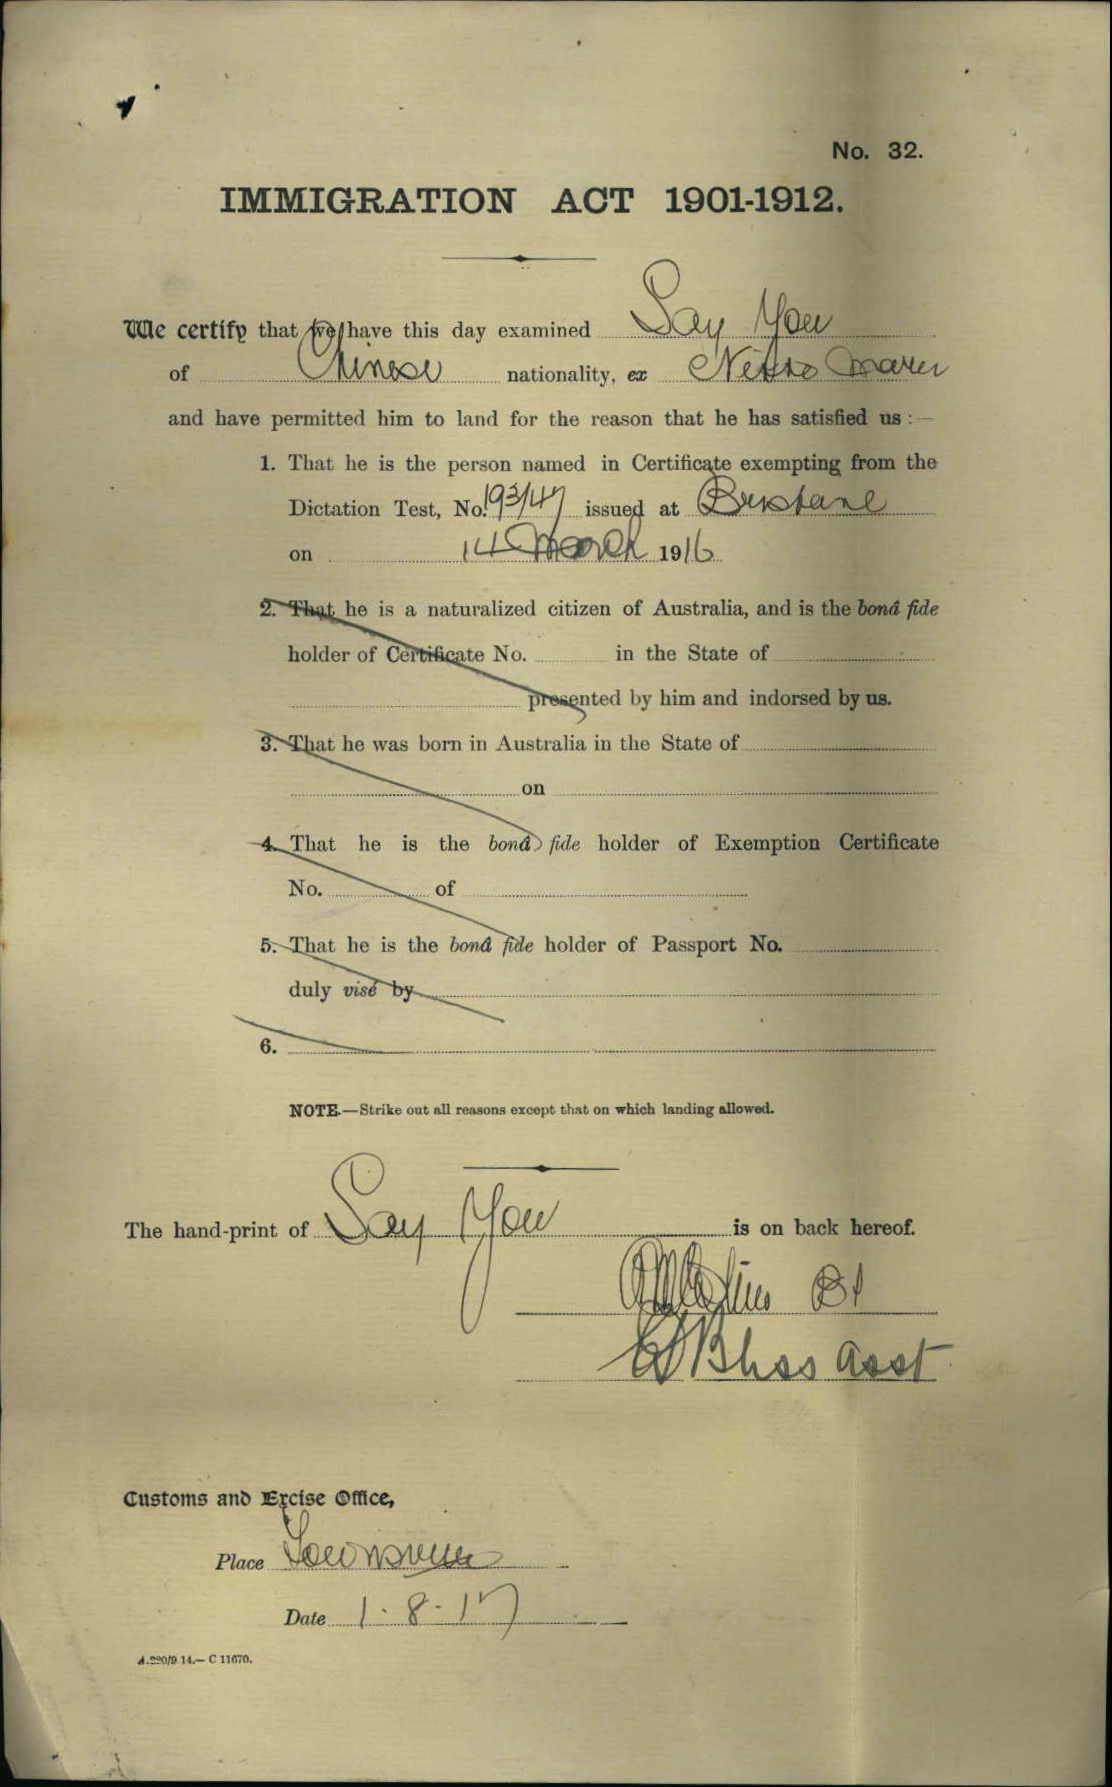 No. 32.
IMMIGRATION ACT 1901-1912.
We certify that we have this day examined Say You
of Chinese nationality, ex Nikko Maru
and have permitted him to land for the reason that he has satisfied us :—
1. That he is the person named in Certificate exempting from the
Dictation Test, No. 193/47 issued at Brisbane
on 14 March 1916
2. That he is a naturalized citizen of Australia, and is the bonâ fide
holder of Certificate No. in the State of
presented by him and indorsed by us.
3. That he was born in Australia in the State of
on
4. That he is the bonâ fide holder of Exemption Certificate
No. of
5. That he is the bonâ fide holder of Passport No.
duly visé by
6.
NOTE.—Strike out all reasons except that on which landing allowed.
The hand-print of Say You is on back hereof.
Bliss Asst
Customs and Excise Office,
Place Townsville
Date 1-8-17
A.220/9.14.—C 11670.